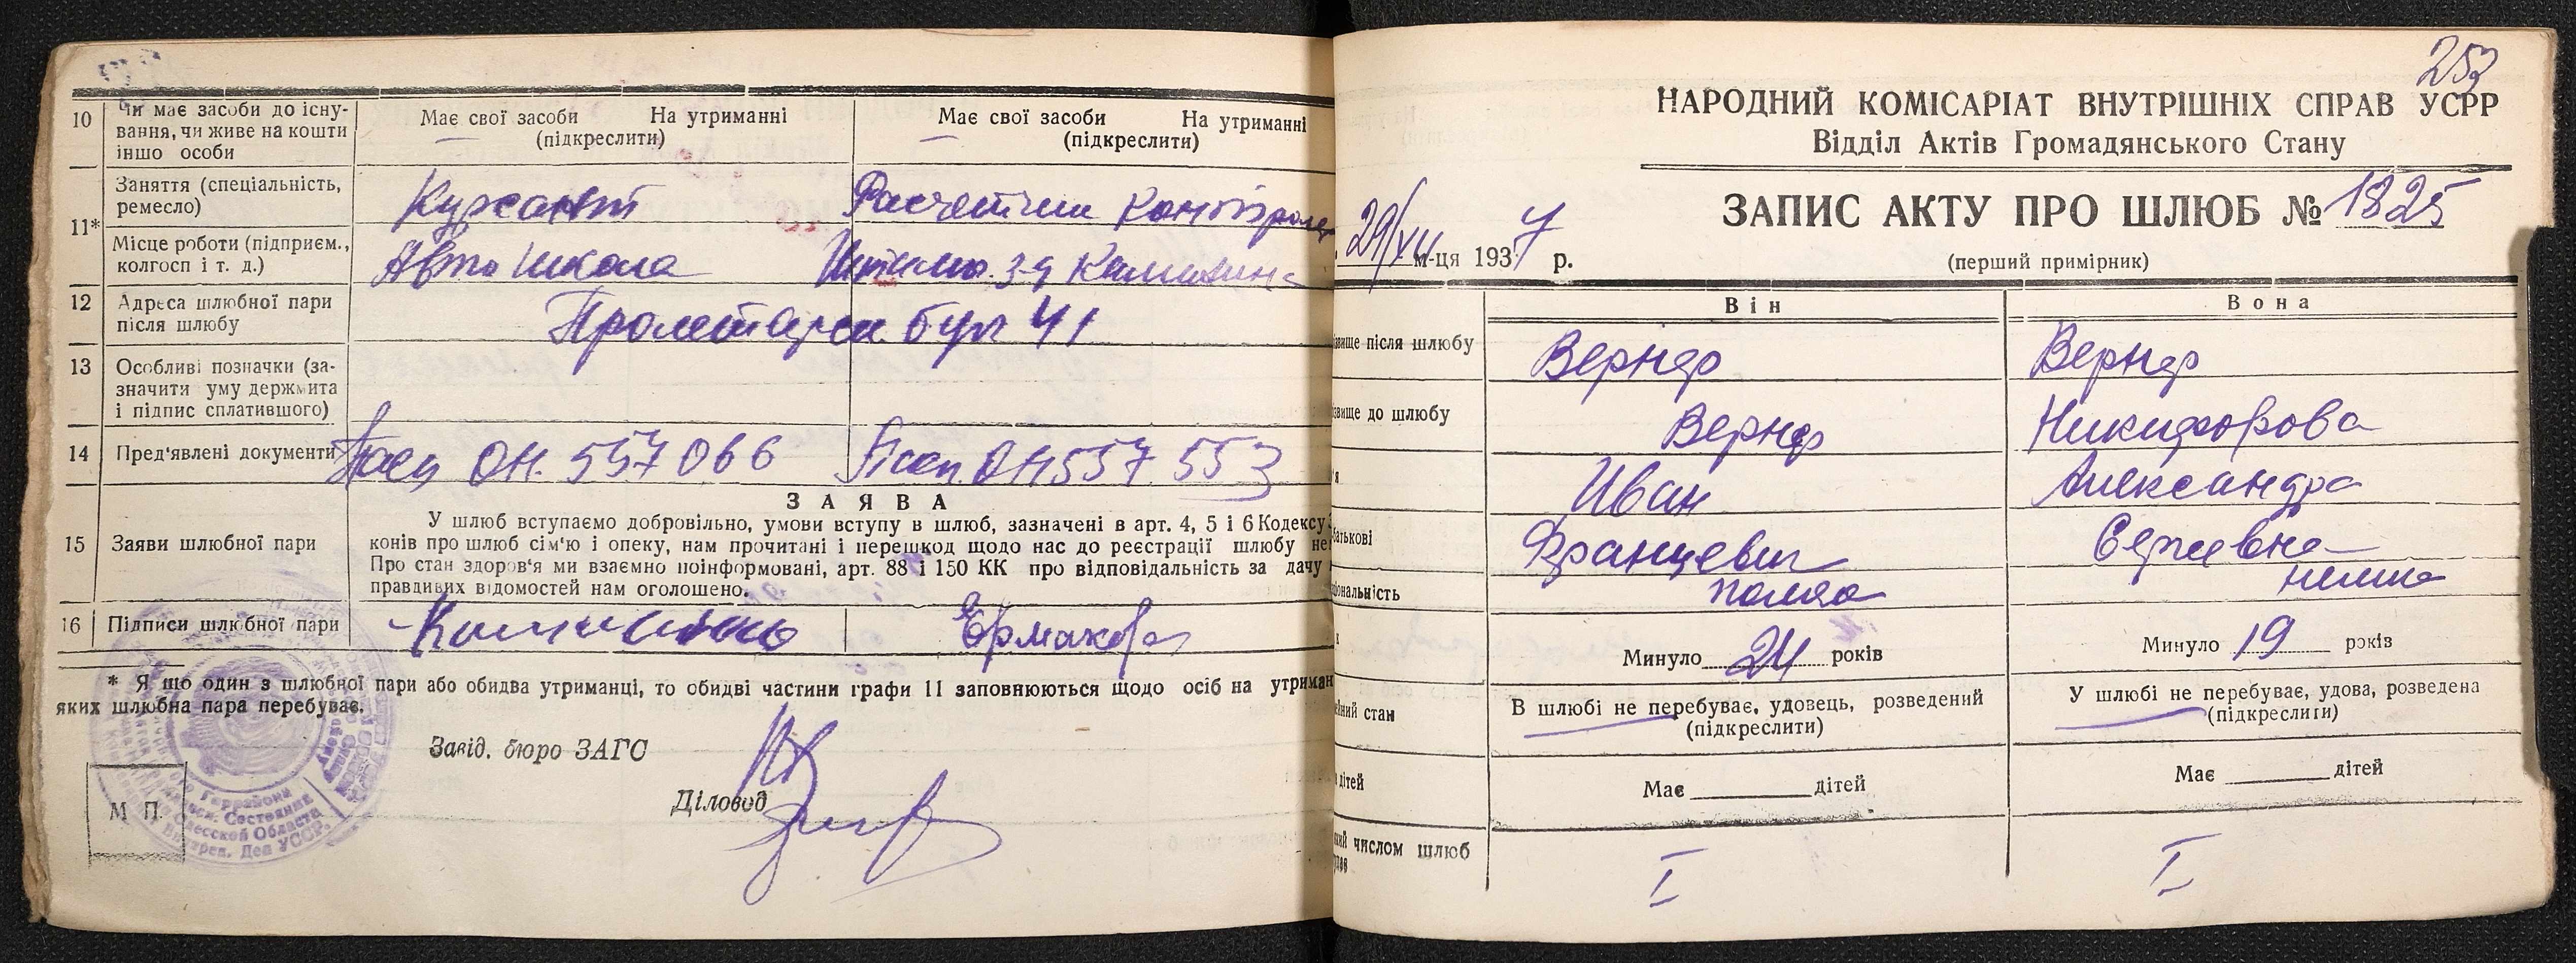 10 Чи має засоби до існу-
вання, чи живе на кошти
іншо особи
Має свої засоби На утриманні
(підкреслити)
Має свої засоби На утриманні
(підкреслити)
11*
Заняття (спеціальність,
ремесло)
Курсант
Расчетчик контролер
Місце роботи (підприєм.,
колгосп і т. д.)
Авто школа
12 Адреса шлюбної пари
після шлюбу
Пролетарск. бул 41
13 Особливі позначки (за-
значити уму держмита
і підпис сплатившого)
14 Пред'явлені документи
Пасп ОН. 557066
Пасп. ОН 557 553
ЗАЯВА
15 Заяви шлюбної пари
У шлюб вступаємо добровільно, умови вступу в шлюб, зазначені в арт. 4, 5 і 6 Кодексу
конів про шлюб сім'ю і опеку, нам прочитані і перешкод щодо нас до реєстрації шлюбу не
Про стан здоров'я ми взаємно поінформовані, арт. 88 і 150 КК про відповідальність за дачу
правдивих відомостей нам оголошено.
16 Підписи шлюбної пари
Ермакова
* Я що один з шлюбної пари або обидва утриманці, то обидві частини графи 11 заповнюються щодо осіб на утриман
яких шлюбна пара перебуває.
Завід. бюро ЗАГС
Діловод
М П.
Состояния
Одесской Области
Внутрен. Дел УССР.
253
НАРОДНИЙ КОМІСАРІАТ ВНУТРІШНІХ СПРАВ УСРР
Відділ Актів Громадянського Стану
ЗАПИС АКТУ ПРО ШЛЮБ № 1825
29/XII м-ця 1937 р.
(перший примірник)
Він Вона
вище після шлюбу
Вернер
Вернер
звище до шлюбу
Вернер
Никифорова
'я
Иван
Александра
батькові
Францевич
Сергеевна
ціональність
поляк
немка
Минуло 24 років
Минуло 19 років
ейний стан
В шлюбі не перебуває, удовець, розведений
(підкреслити)
У шлюбі не перебуває, удова, розведена
(підкреслити)
дітей
Має дітей
Має дітей
числом шлюб
I
I